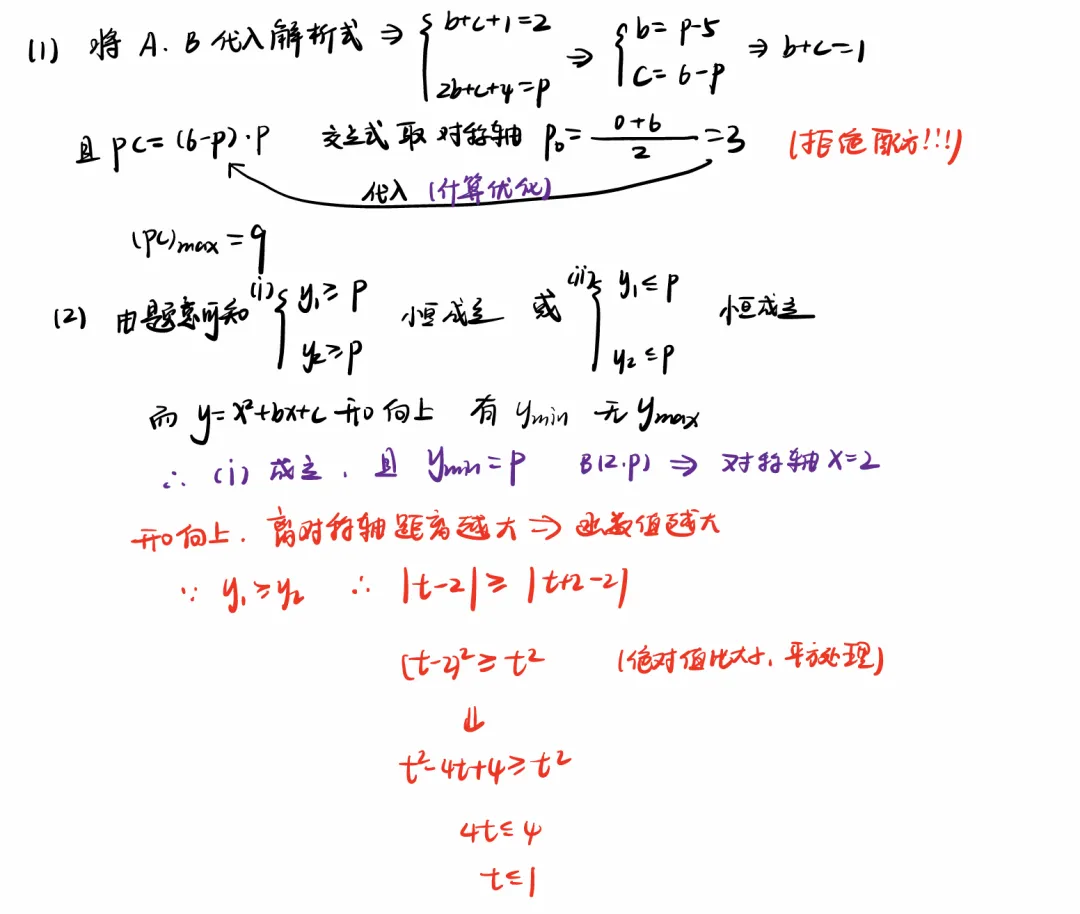 (1) 将 A. B 代入解析式 ⇒ { b+c+1=2 2b+c+4=p ⇒ { b=p-5 c=6-p ⇒ b+c=1
且 pc=(6-p)·p 交点式取对称轴 p₀= (0+6)/2 =3 (拒绝配方!!!)
代入 (计算优化)
(pc)max=9
(2) 由题意可知 (i) { y₁≥p y₂≥p 恒成立 或 (ii) { y₁≤p y₂≤p 恒成立
而 y=x²+bx+c 开口向上 有 ymin 无 ymax
∴ (i) 成立. 且 ymin=p B(2.p) ⇒ 对称轴 x=2
开口向上. 离对称轴距离越大 ⇒ 函数值越大
∵ y₁≥y₂ ∴ |t-2|≥|t+2-2|
(t-2)²≥t² (绝对值比大小, 平方处理)
⇓
t²-4t+4≥t²
4t≤4
t≤1